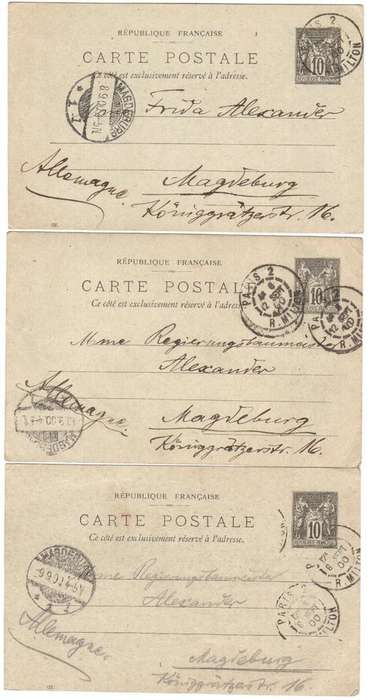 RÉPUBLIQUE FRANÇAISE
CARTE POSTALE
Ce côté est exclusivement réservé à l'adresse.
PARIS 2
R. MILTON
10
MAGDEBURG
Frida Alexander
Allemagne.
Magdeburg
Königgrätzerstr. 16.
RÉPUBLIQUE FRANÇAISE
CARTE POSTALE
Ce côté est exclusivement réservé à l'adresse.
PARIS 2
R. MILTON
10
PARIS 2
R. MILTON
Mme Regierungsbaumeister
Alexander
Allemagne.
Magdeburg
Königgrätzerstr. 16.
MAGDEBURG
RÉPUBLIQUE FRANÇAISE
CARTE POSTALE
Ce côté est exclusivement réservé à l'adresse.
10
MAGDEBURG
PARIS 2
R. MILTON
Mme Regierungsbaumeister
Alexander
PARIS 2
MILTON
Allemagne.
Magdeburg
Königgrätzerstr. 16